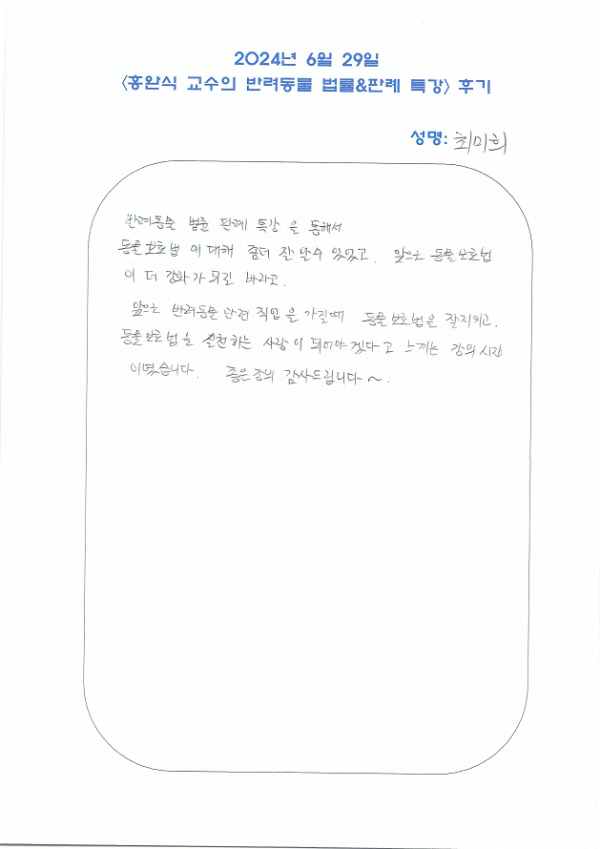 2024년 6월 29일
<홍완식 교수의 반려동물 법률&판례 특강> 후기
성명: 최미희
반려동물 법률 판례 특강 을 통해서
동물보호법 에 대해 좀더 잘 알수 있었고. 앞으로 동물보호법
이 더 강화가 되길 바라고.
앞으로 반려동물 관련 직업 을 가질때 동물보호법을 잘지키고.
동물보호법을 실천하는 사람이 되어야겠다고 느끼는 강의 시간
이였습니다. 좋은강의 감사드립니다~.